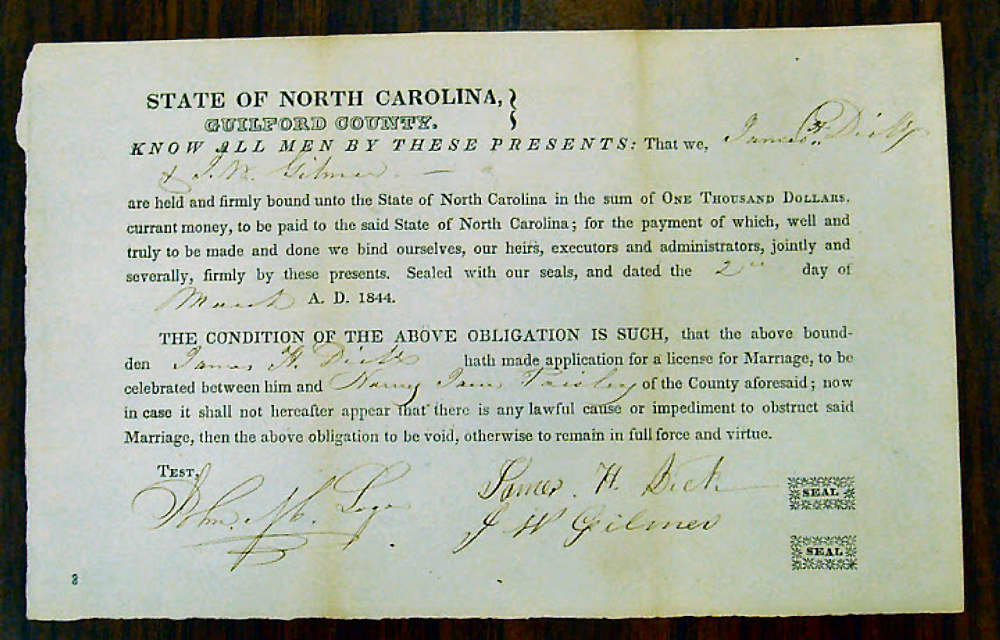 STATE OF NORTH CAROLINA,
GUILFORD COUNTY.
KNOW ALL MEN BY THESE PRESENTS: That we, James H. Dick
& J. W. Gilmer. —
are held and firmly bound unto the State of North Carolina in the sum of ONE THOUSAND DOLLARS.
currant money, to be paid to the said State of North Carolina; for the payment of which, well and
truly to be made and done we bind ourselves, our heirs, executors and administrators, jointly and
severally, firmly by these presents. Sealed with our seals, and dated the 2nd day of
March A. D. 1844.
THE CONDITION OF THE ABOVE OBLIGATION IS SUCH, that the above bound-
den James H. Dick hath made application for a license for Marriage, to be
celebrated between him and Nancy Jane Paisley of the County aforesaid; now
in case it shall not hereafter appear that there is any lawful cause or impediment to obstruct said
Marriage, then the above obligation to be void, otherwise to remain in full force and virtue.
TEST,
James. H. Dick
SEAL
John M. Logan
J W Gilmer
SEAL